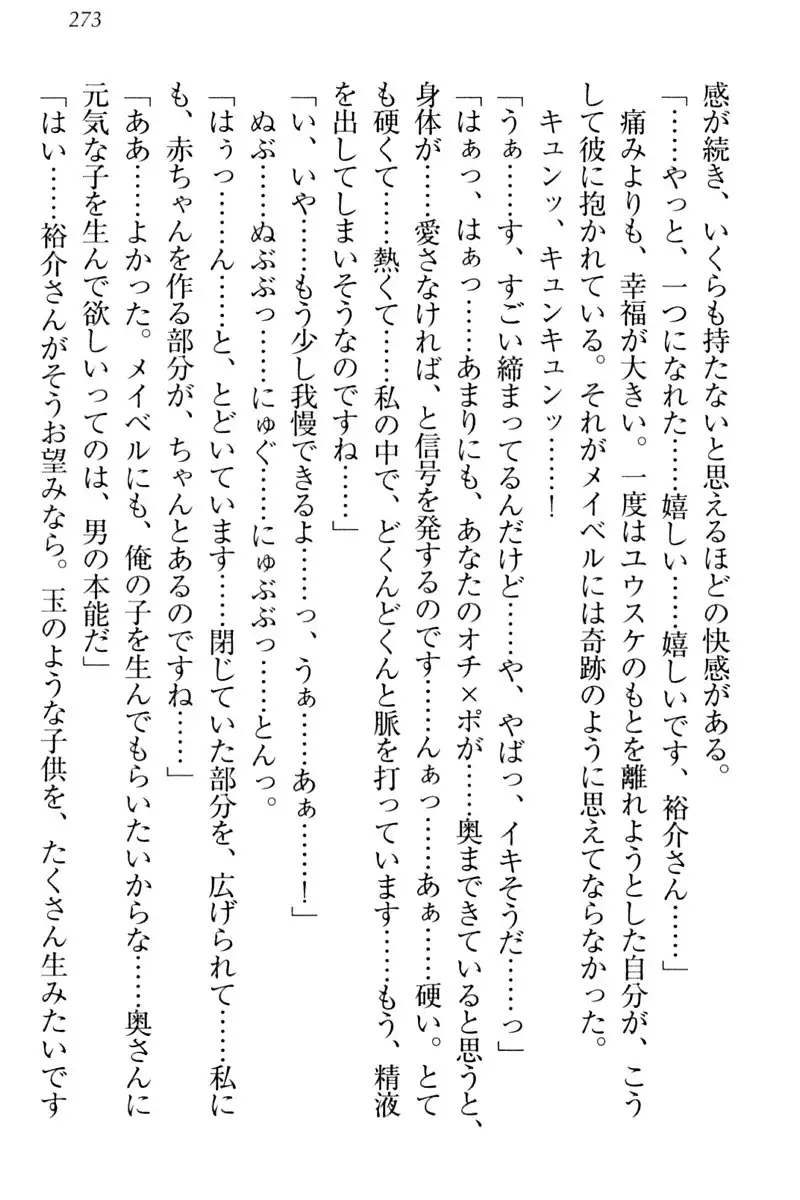 273
感が続き、いくらも持たないと思えるほどの快感がある。
「……やっと、一つになれた……嬉しい……嬉しいです、裕介さん……」
痛みよりも、幸福が大きい。一度はユウスケのもとを離れようとした自分が、こう
して彼に抱かれている。それがメイベルには奇跡のように思えてならなかった。
キュンッ、キュンキュンッ……！
「うぁ……す、すごい締まってるんだけど……や、やばっ、イキそうだ……っ」
「はぁっ、はぁっ……あまりにも、あなたのオチ×ポが……奥まできていると思うと、
身体が……愛さなければ、と信号を発するのです……んぁっ……あぁ……硬い。とて
も硬くて……熱くて……私の中で、どくんどくんと脈を打っています……もう、精液
を出してしまいそうなのですね……」
「い、いや……もう少し我慢できるよ……っ、うぁ……あぁ……！」
ぬぶ……ぬぶぶっ……にゅぐ……にゅぶぶっ……とんっ。
「はぅっ……ん……と、とどいています……閉じていた部分を、広げられて……私に
も、赤ちゃんを作る部分が、ちゃんとあるのですね……」
「ああ……よかった。メイベルにも、俺の子を生んでもらいたいからな……奥さんに
元気な子を生んで欲しいってのは、男の本能だ」
「はい……裕介さんがそうお望みなら。玉のような子供を、たくさん生みたいです